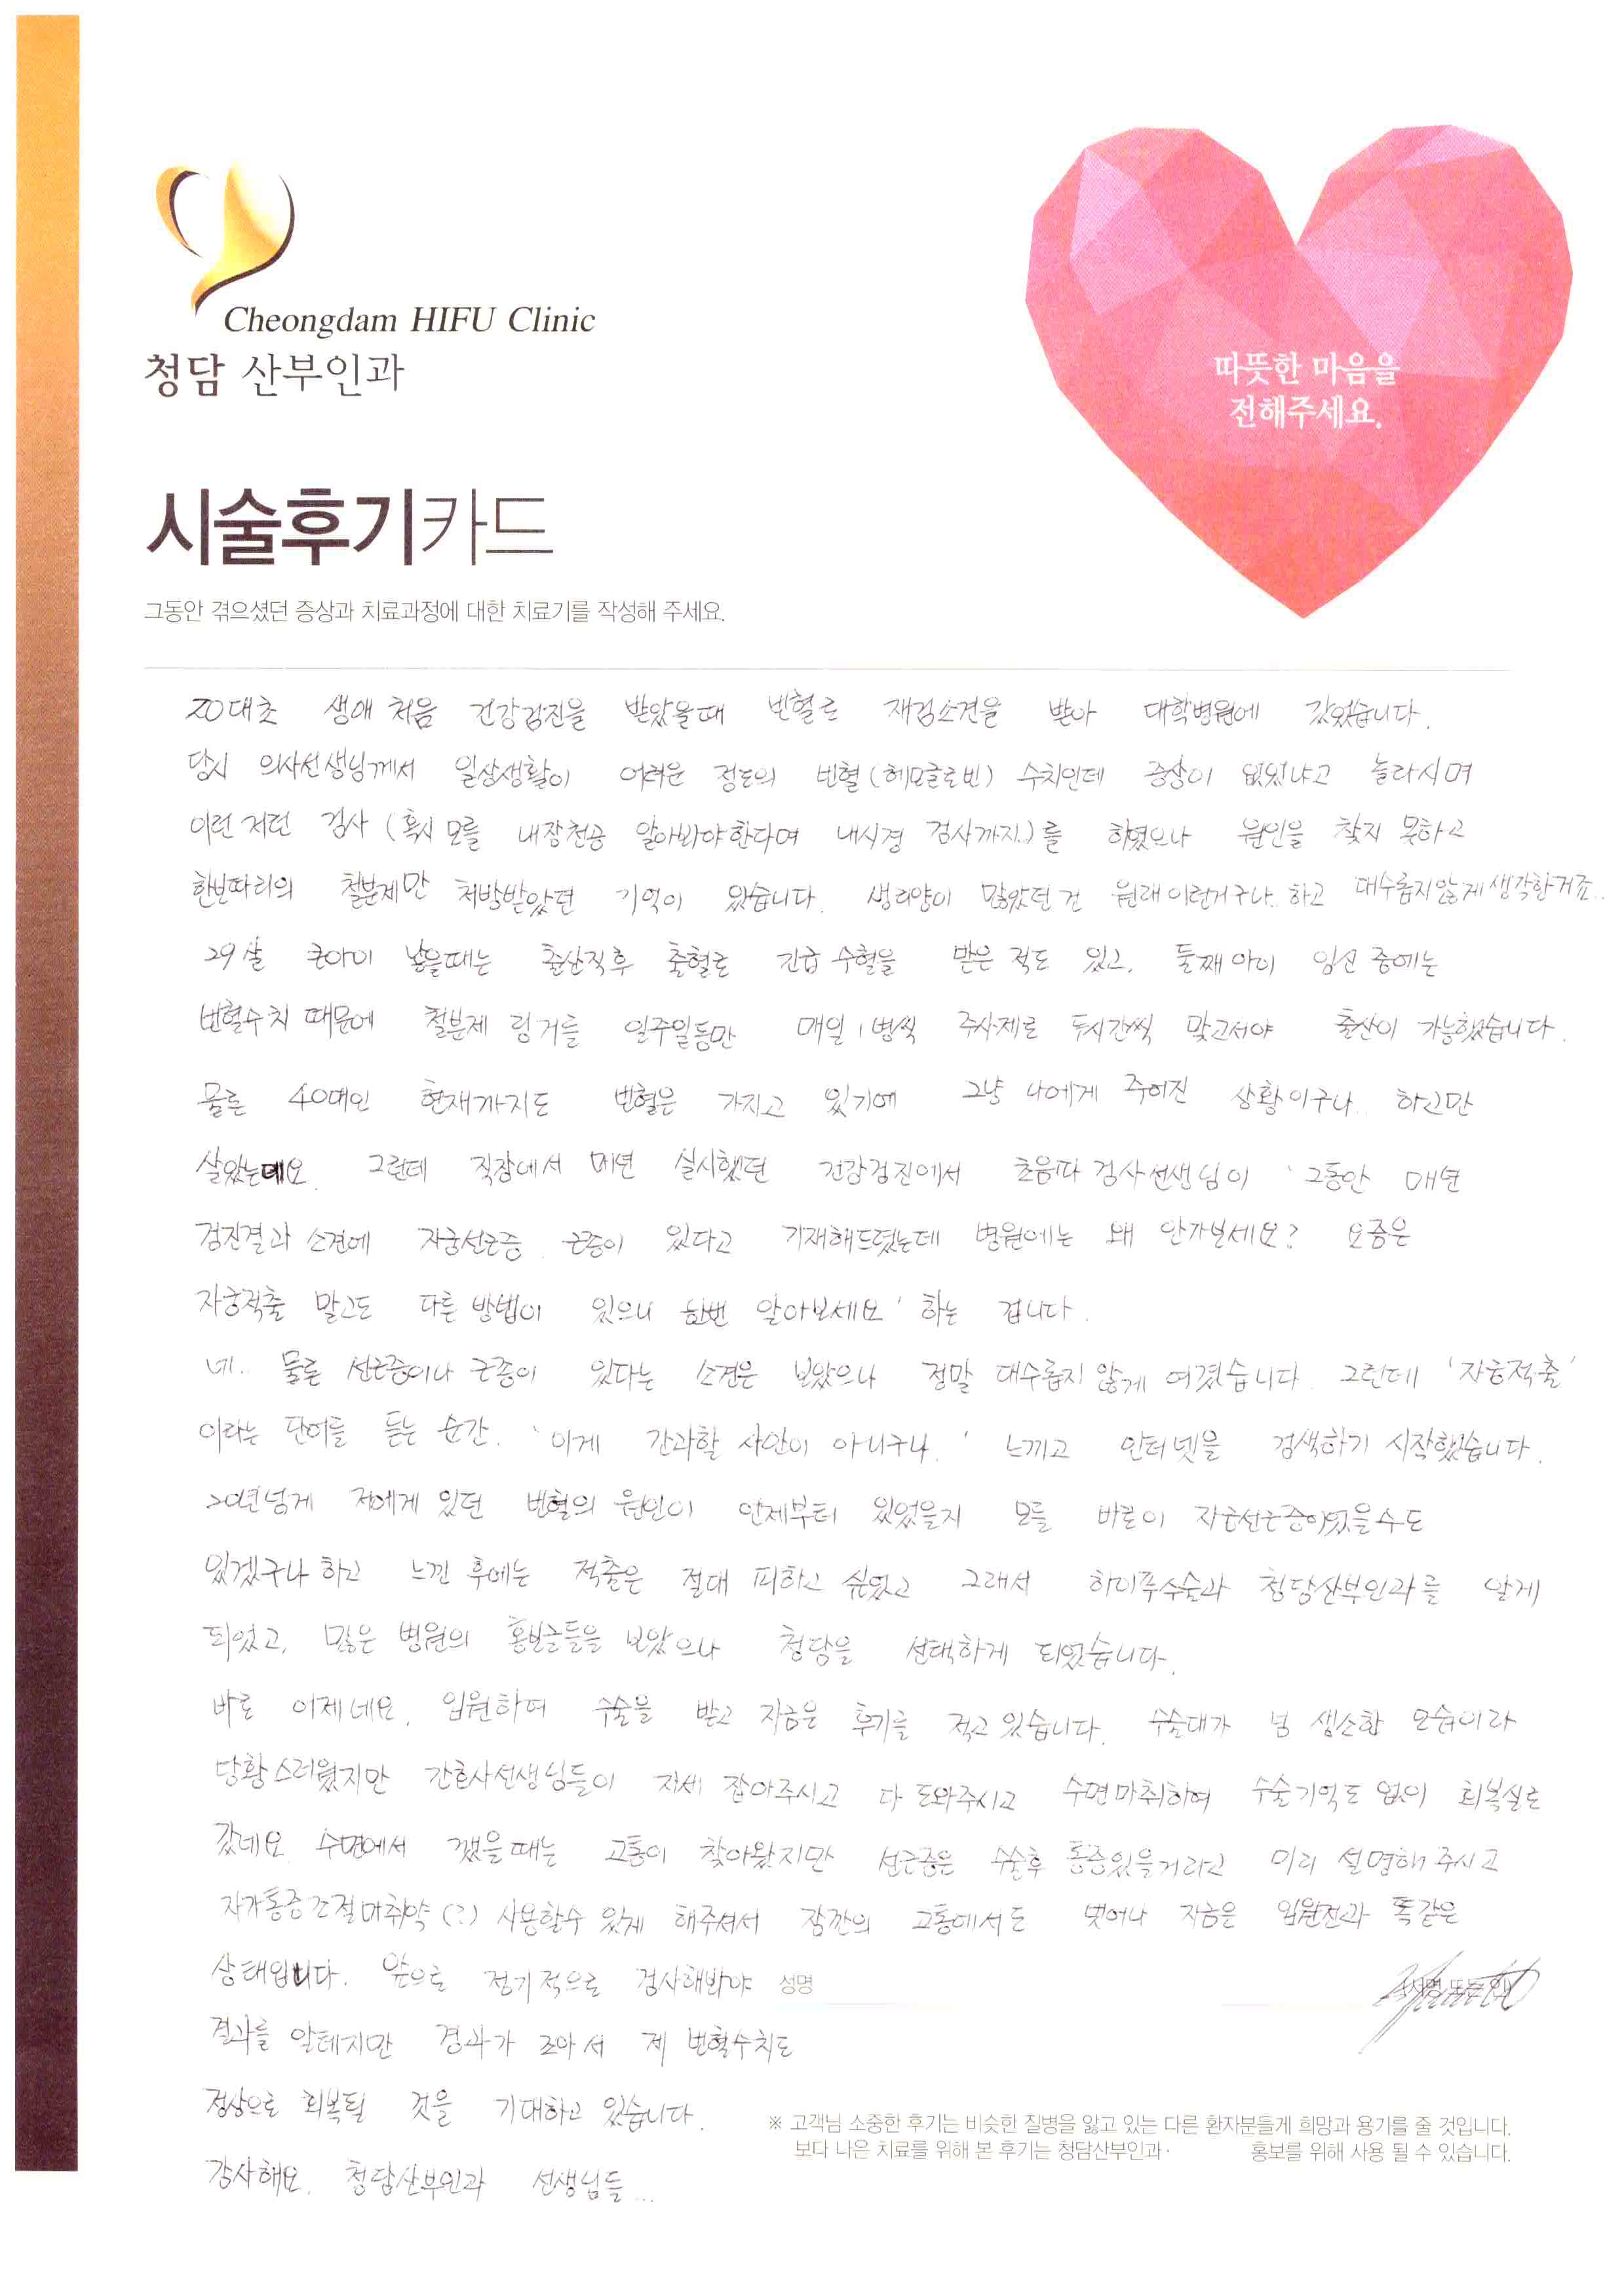 Cheongdam HIFU Clinic
청담 산부인과
따뜻한 마음을
전해주세요.
시술후기카드
그동안 겪으셨던 증상과 치료과정에 대한 치료기를 작성해 주세요.
20대초 생애 처음 건강검진을 받았을때 빈혈로 재검소견을 받아 대학병원에 갔었습니다.
당시 의사선생님께서 일상생활이 어려운 정도의 빈혈(헤모글로빈) 수치인데 증상이 없었냐고 놀라시며
이런 저런 검사 (혹시 모를 내장천공 알아봐야한다며 내시경 검사까지..)를 하였으나 원인을 찾지 못하고
한보따리의 철분제만 처방받았던 기억이 있습니다. 생리양이 많았던 건 원래 이런거구나.. 하고 대수롭지않게 생각한거죠..
29살 큰아이 낳을때는 출산직후 출혈로 긴급 수혈을 받은 적도 있고, 둘째 아이 임신 중에는
빈혈수치 때문에 철분제 링거를 일주일동안 매일 1병씩 주사제로 두시간씩 맞고서야 출산이 가능했습니다.
물론 40대인 현재까지도 빈혈은 가지고 있기에 그냥 나에게 주어진 상황이구나.. 하고만
살았는데요. 그런데 직장에서 매년 실시했던 건강검진에서 초음파 검사선생님이 '그동안 매년
검진결과 소견에 자궁선근증. 근종이 있다고 기재해드렸는데 병원에는 왜 안가보세요? 요즘은
자궁적출 말고도 다른 방법이 있으니 한번 알아보세요' 하는 겁니다.
네.. 물론 선근증이나 근종이 있다는 소견은 보았으나 정말 대수롭지 않게 여겼습니다. 그런데 '자궁적출'
이라는 단어를 듣는 순간. '이게 간과할 사안이 아니구나.' 느끼고 인터넷을 검색하기 시작했습니다.
20년넘게 저에게 있던 빈혈의 원인이 언제부터 있었을지 모를 바로이 자궁선근증이었을수도
있겠구나 하고 느낀 후에는 적출은 절대 피하고 싶었고 그래서 하이푸수술과 청담산부인과를 알게
되었고, 많은 병원의 홍보글들을 보았으나 청담을 선택하게 되었습니다.
바로 어제네요. 입원하여 수술을 받고 지금은 후기를 적고 있습니다. 수술대가 넘 생소한 모습이라
당황스러웠지만 간호사선생님들이 자세 잡아주시고 다 도와주시고 수면마취하여 수술기억도 없이 회복실로
갔네요. 수면에서 깼을때는 고통이 찾아왔지만 선근증은 수술후 통증있을거라고 미리 설명해 주시고
자가통증조절마취약(?) 사용할수 있게 해주셔서 잠깐의 고통에서도 벗어나 지금은 입원전과 똑같은
상태입니다. 앞으로 정기적으로 검사해봐야 성명
결과를 알테지만 경과가 조아서 제 빈혈수치도
정상으로 회복될 것을 기대하고 있습니다.
※ 고객님 소중한 후기는 비슷한 질병을 앓고 있는 다른 환자분들께 희망과 용기를 줄 것입니다.
보다 나은 치료를 위해 본 후기는 청담산부인과· 홍보를 위해 사용 될 수 있습니다.
감사해요. 청담산부인과 선생님들...